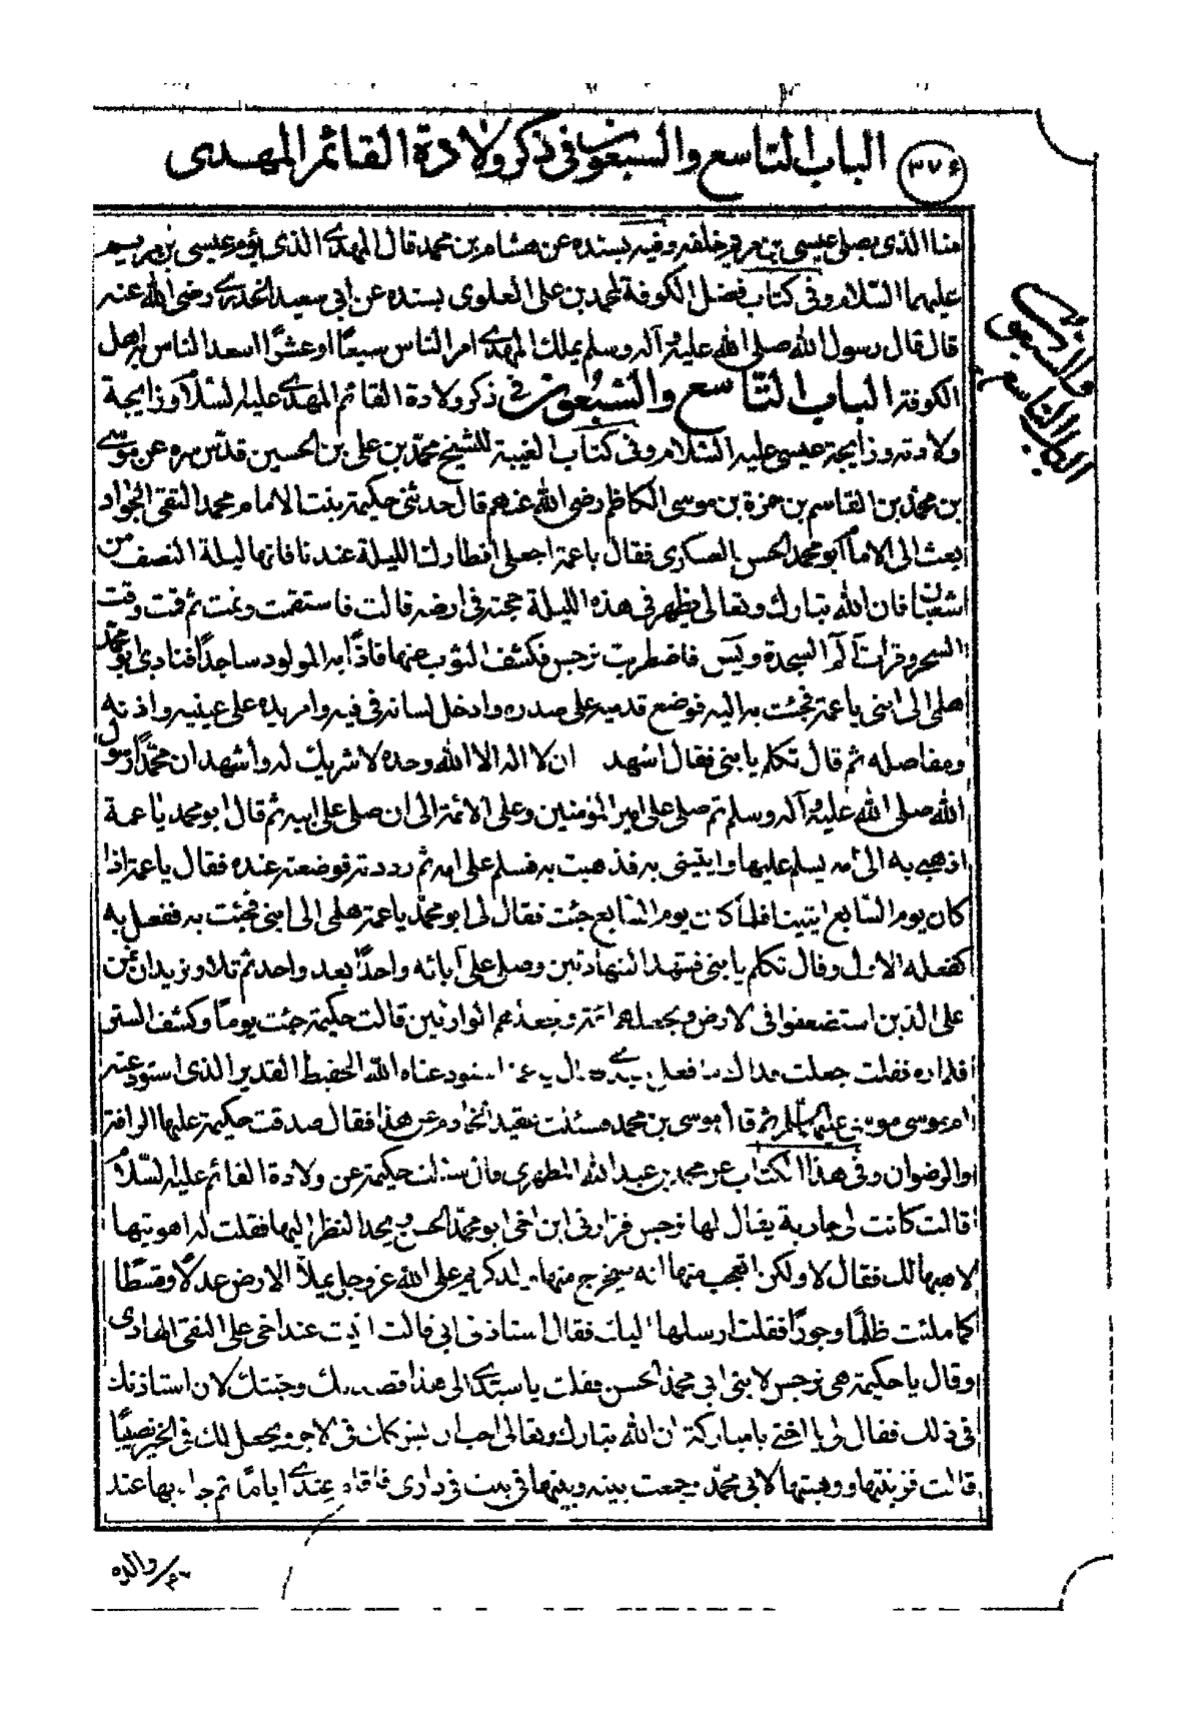 ٣٧٤ الباب التاسع والسبعون فى ذكر ولادة القائم المهدى
منا الذى يصلى عيسى بن مريم خلفه وفيه بسنده عن هشام بن محمد قال المهدى الذى يؤم عيسى بن مريم
عليهما السلام وفى كتاب فضل الكوفة لمحمد بن على العلوى بسنده عن ابى سعيد الخدرى رضى الله عنه
قال قال رسول الله صلى الله عليه وآله وسلم يملك المهدى امر الناس سبعًا او عشرًا اسعد الناس به اهل
الكوفة الباب التاسع والسبعون فى ذكر ولادة القائم المهدى عليه السلام وزايجة
ولادته وزايجة عيسى عليه السلام وفى كتاب الغيبة للشيخ محمد بن على بن الحسين قدس سره عن موسى
بن محمد بن القاسم بن حمزة بن موسى الكاظم رضى الله عنهم قال حدثنى حكيمة بنت الامام محمد التقى الجواد
بعث الى الامام ابو محمد الحسن العسكرى فقال يا عمة اجعلى افطارك الليلة عندنا فانها ليلة النصف من
شعبان فان الله تبارك وتعالى يظهر فى هذه الليلة حجته فى ارضه قالت فاستقمت ونمت ثم قمت وقت
السحر وقرات آلم السجدة ويس فاضطربت نرجس فكشف الثوب عنها فاذا به المولود ساجدًا فنادى ابو محمد
هلمى الى ابنى يا عمة فجئت به اليه فوضع قدميه على صدره وادخل لسانه فى فيه وامر يده على عينيه واذنه
ومفاصله ثم قال تكلم يا بنى فقال اشهد ان لا اله الا الله وحده لا شريك له وأشهد ان محمدًا رسول
الله صلى الله عليه وآله وسلم ثم صلى على امير المؤمنين وعلى الائمة الى ان صلى على ابيه ثم قال ابو محمد يا عمة
اذهبى به الى امه يسلم عليها وايتينى به فذهبت به فسلم على امه ثم رددته فوضعته عنده فقال يا عمة اذا
كان يوم السابع ايتينا فلما كان يوم السابع جئت فقال لى ابو محمد يا عمة هلمى الى ابنى فجئت به ففعل به
كفعله الاول وقال تكلم يا بنى فشهد الشهادتين وصلى على آبائه واحدًا بعد واحد ثم تلا ونريد ان نمن
على الذين استضعفوا فى الارض ونجعلهم ائمة ونجعلهم الوارثين قالت حكيمة جئت يومًا وكشف الستر
فلم اره فقلت جعلت فداك ما فعل سيدى قال يا عمة استودعناه الله الحفيظ القدير الذى استودعته
ام موسى موسى عليهما السلام ثم قال موسى بن محمد فسئلت عقيد الخادم عن هذا فقال صدقت حكيمة عليها الرافة
والرضوان وفى هذا الكتاب عن محمد بن عبد الله المطهرى قال سئلت حكيمة عن ولادة القائم عليه السلام
قالت كانت لى جارية يقال لها نرجس فزارنى ابن اخى ابو محمد الحسن يحد النظر اليها فقلت له اهويتها
لاهبها لك فقال لا ولكن اتعجب منها انه سيخرج منها ولد كريم على الله عز وجل يملأ الارض عدلًا وقسطًا
كما ملئت ظلمًا وجورًا فقلت ارسلها اليك فقال استاذنى ابى قالت اتيت عند اخى على النقى الهادى
وقال يا حكيمة هى نرجس لابنى ابى محمد الحسن فقلت يا سيدى الى هذا قصدتك وجئتك لان استاذنك
فى ذلك فقال لى يا اختى يا مباركة ان الله تبارك وتعالى احب ان يشركك فى الاجر ويجعل لك فى الخير نصيبًا
قالت فزينتها ووهبتها لابى محمد وجمعت بينه وبينها فى بيت فى دارى فاقام عندى ايامًا ثم جاء بها عند
والده
الباب التاسع
والسبعون